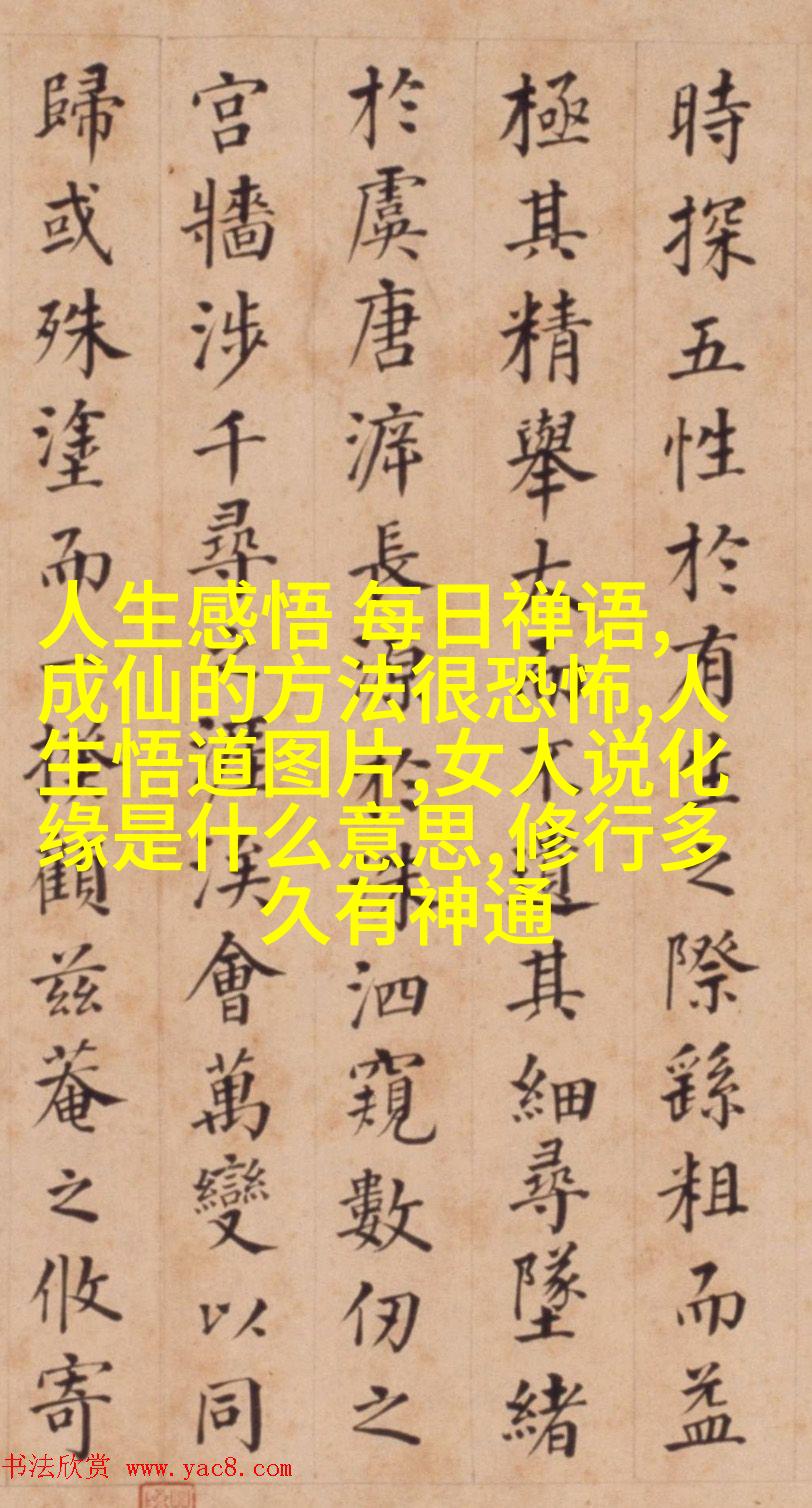 時探五性於有生之際繇粗而益
極其精舉大而不遺其細尋墜緒
於虞唐長於洙泗窺數仞之
宮牆涉千尋之涯涘會萬變以同
歸或殊塗而一揆顧茲菴之攸寄
人生感悟 每日禅语,
成仙的方法很恐怖,人
生悟道图片,女人说化
缘是什么意思,修行多
久有神通
书法欣赏 www.yac8.com